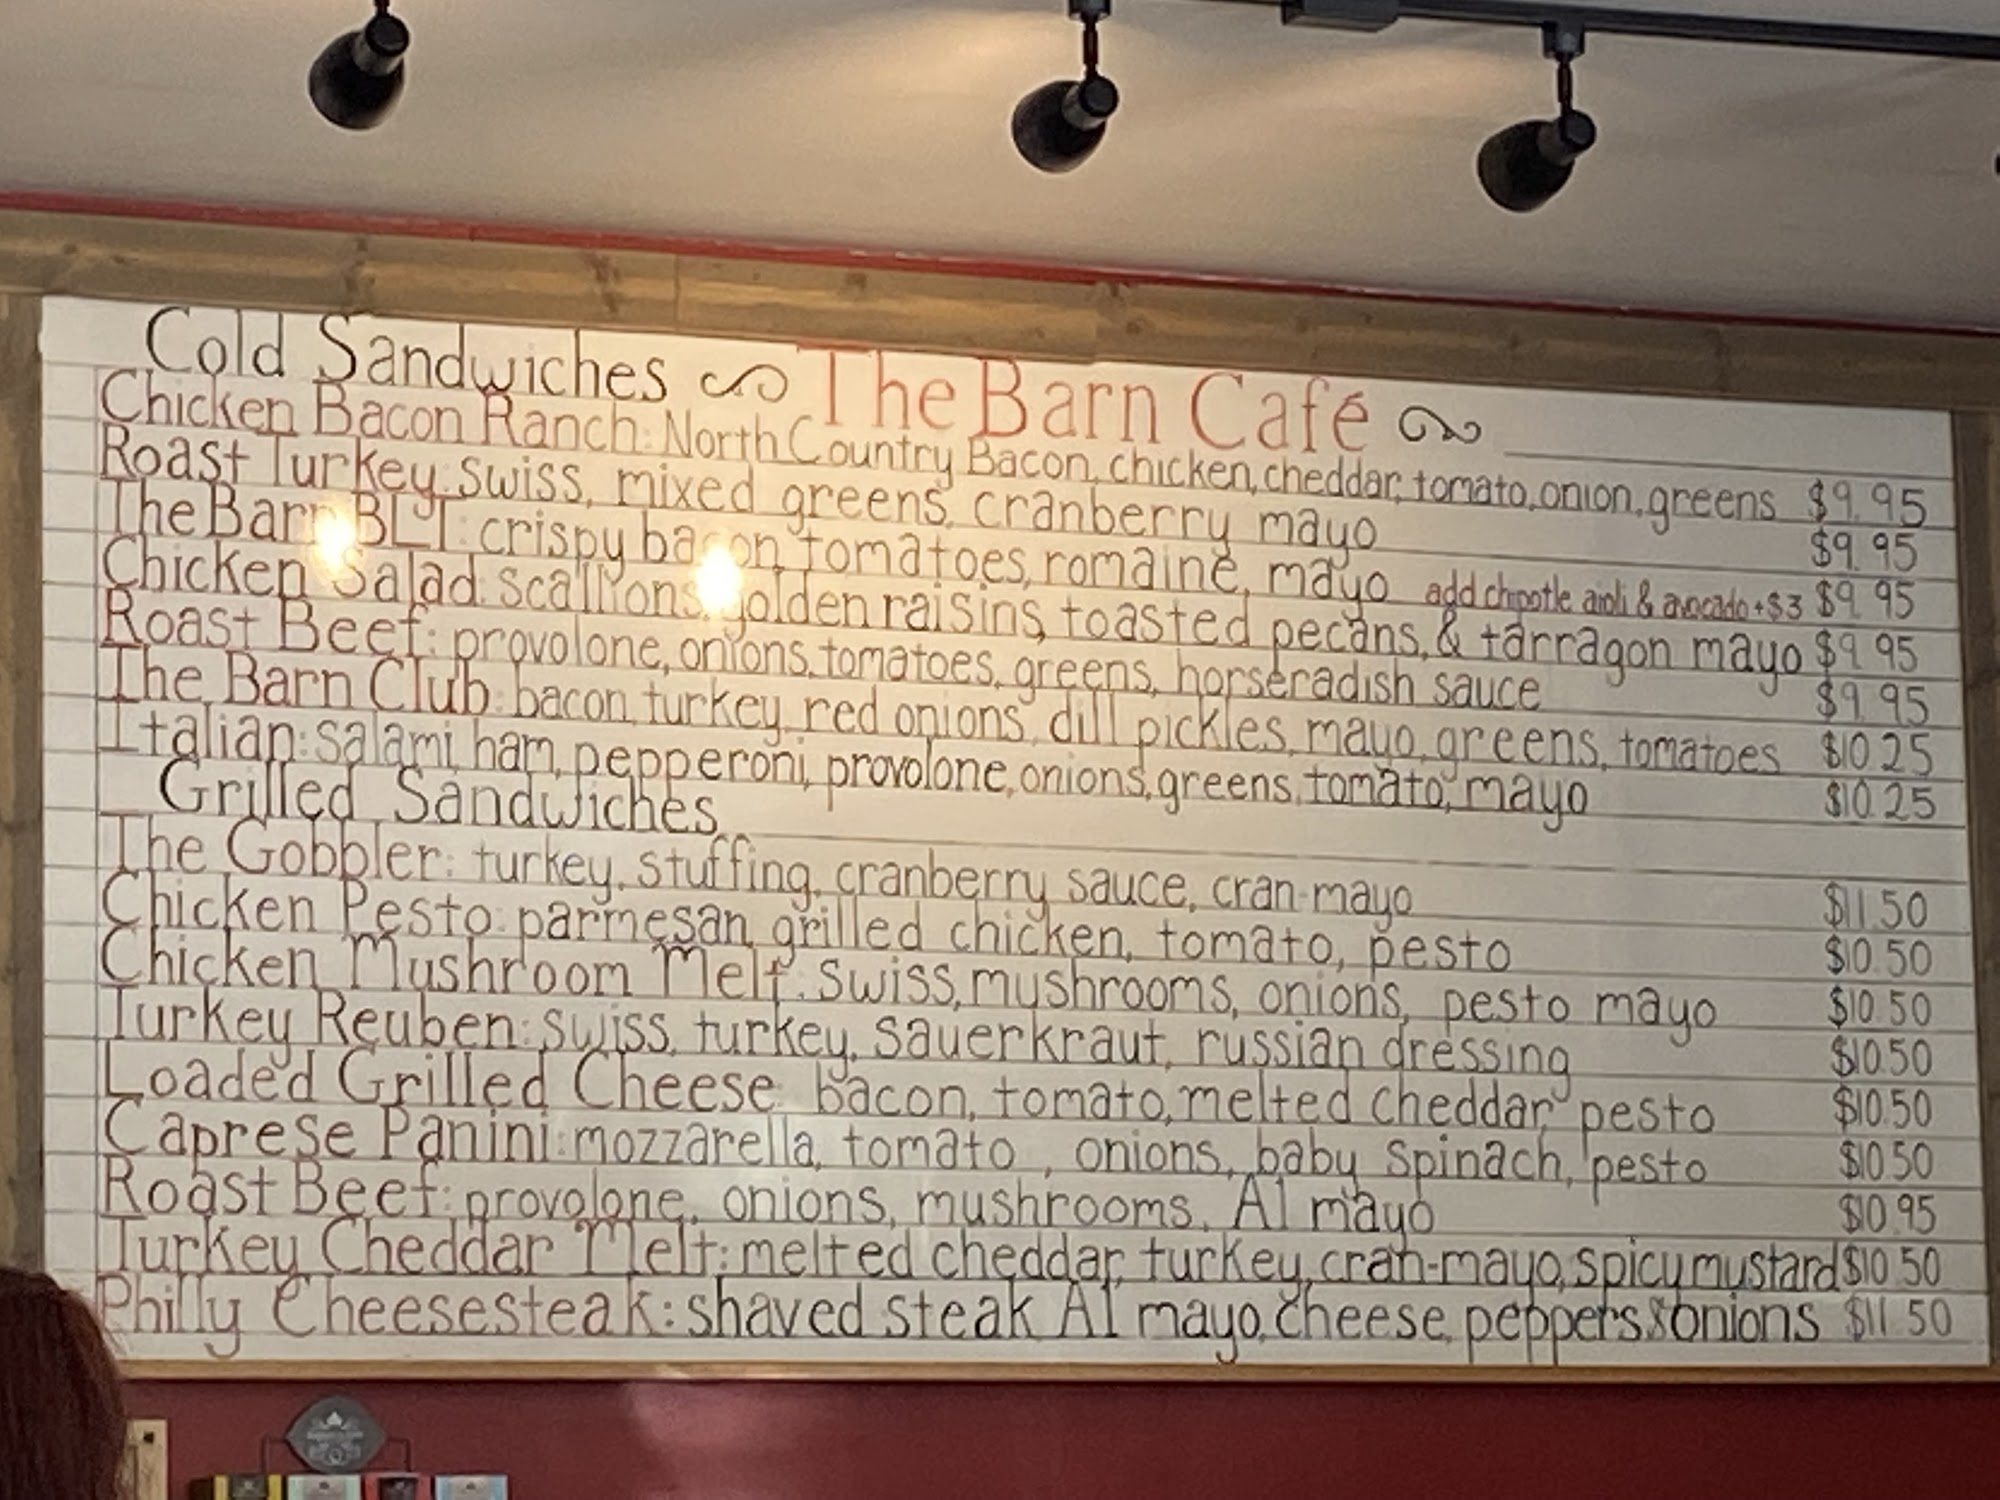 Cold Sandwiches The Barn Café
Chicken Bacon Ranch: North Country Bacon, chicken, cheddar, tomato, onion, greens $9.95
Roast Turkey: swiss, mixed greens, cranberry mayo $9.95
The Barn BLT: crispy bacon, tomatoes, romaine, mayo add chipotle aioli & avocado +$3 $9.95
Chicken Salad: scallions, golden raisins, toasted pecans, & tarragon mayo $9.95
Roast Beef: provolone, onions, tomatoes, greens, horseradish sauce $9.95
The Barn Club: bacon, turkey, red onions, dill pickles, mayo, greens, tomatoes $10.25
Italian: salami, ham, pepperoni, provolone, onions, greens, tomato, mayo $10.25
Grilled Sandwiches
The Gobbler: turkey, stuffing, cranberry sauce, cran-mayo $11.50
Chicken Pesto: parmesan, grilled chicken, tomato, pesto $10.50
Chicken Mushroom Melt: swiss, mushrooms, onions, pesto mayo $10.50
Turkey Reuben: swiss, turkey, sauerkraut, russian dressing $10.50
Loaded Grilled Cheese: bacon, tomato, melted cheddar, pesto $10.50
Caprese Panini: mozzarella, tomato, onions, baby spinach, pesto $10.50
Roast Beef: provolone, onions, mushrooms, A1 mayo $10.95
Turkey Cheddar Melt: melted cheddar, turkey, cran-mayo, spicy mustard $10.50
Philly Cheesesteak: shaved steak A1 mayo, cheese, peppers & onions $11.50